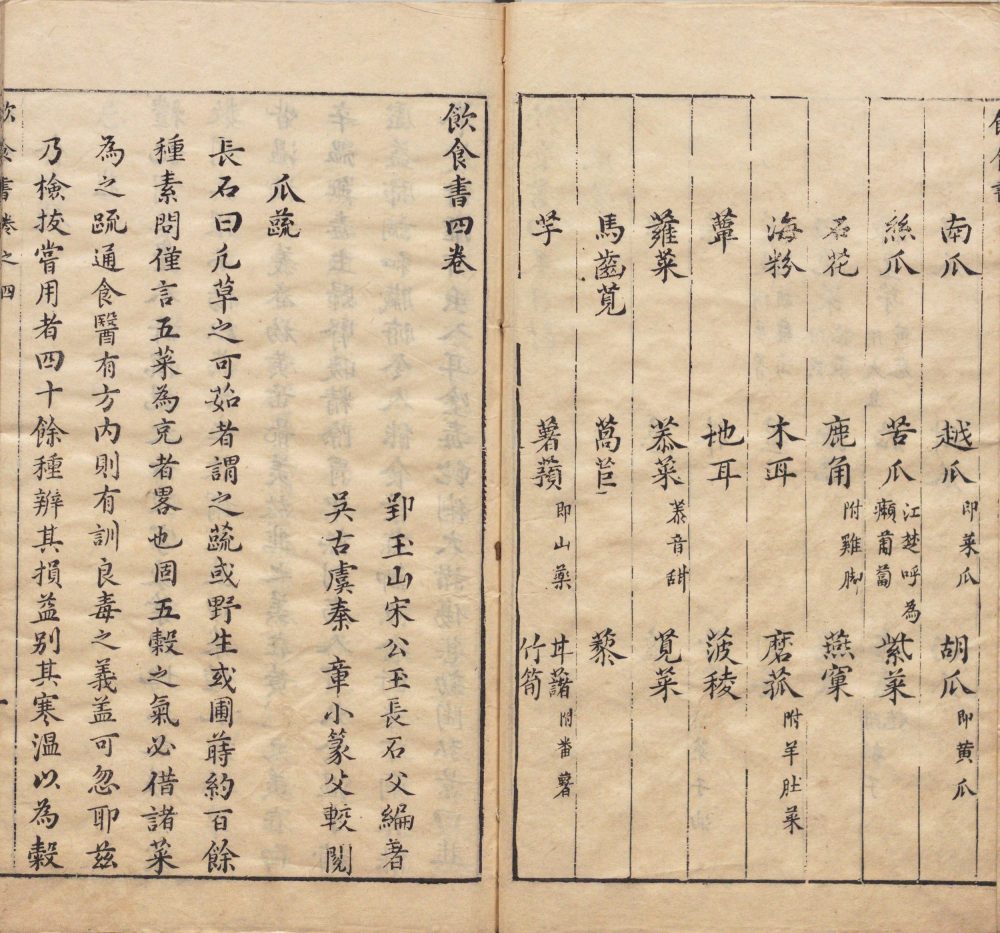 南瓜 越瓜 即菜瓜 胡瓜 即黄瓜
絲瓜 苦瓜 江楚呼為癩葡萄 紫菜
石花 鹿角 附雞脚 燕窠
海粉 木耳 磨菰 附羊肚菜
蕈 地耳 菠稜
蕹菜 菾菜 菾音甜 莧菜
馬齒莧 萵苣 藜
芋 薯蕷 即山藥 甘藷 附番薯 竹筍
飲食書四卷
郢玉山宋公玉長石父編著
吳古虞秦章小篆父較閱
瓜蔬
長石曰凡草之可茹者謂之蔬或野生或圃蒔約百餘
種素問僅言五菜為充者畧也固五穀之氣必借諸菜
為之疏通食醫有方內則有訓良毒之義盖可忽耶茲
乃檢拔嘗用者四十餘種辨其損益别其寒溫以為穀
飲食書卷之四